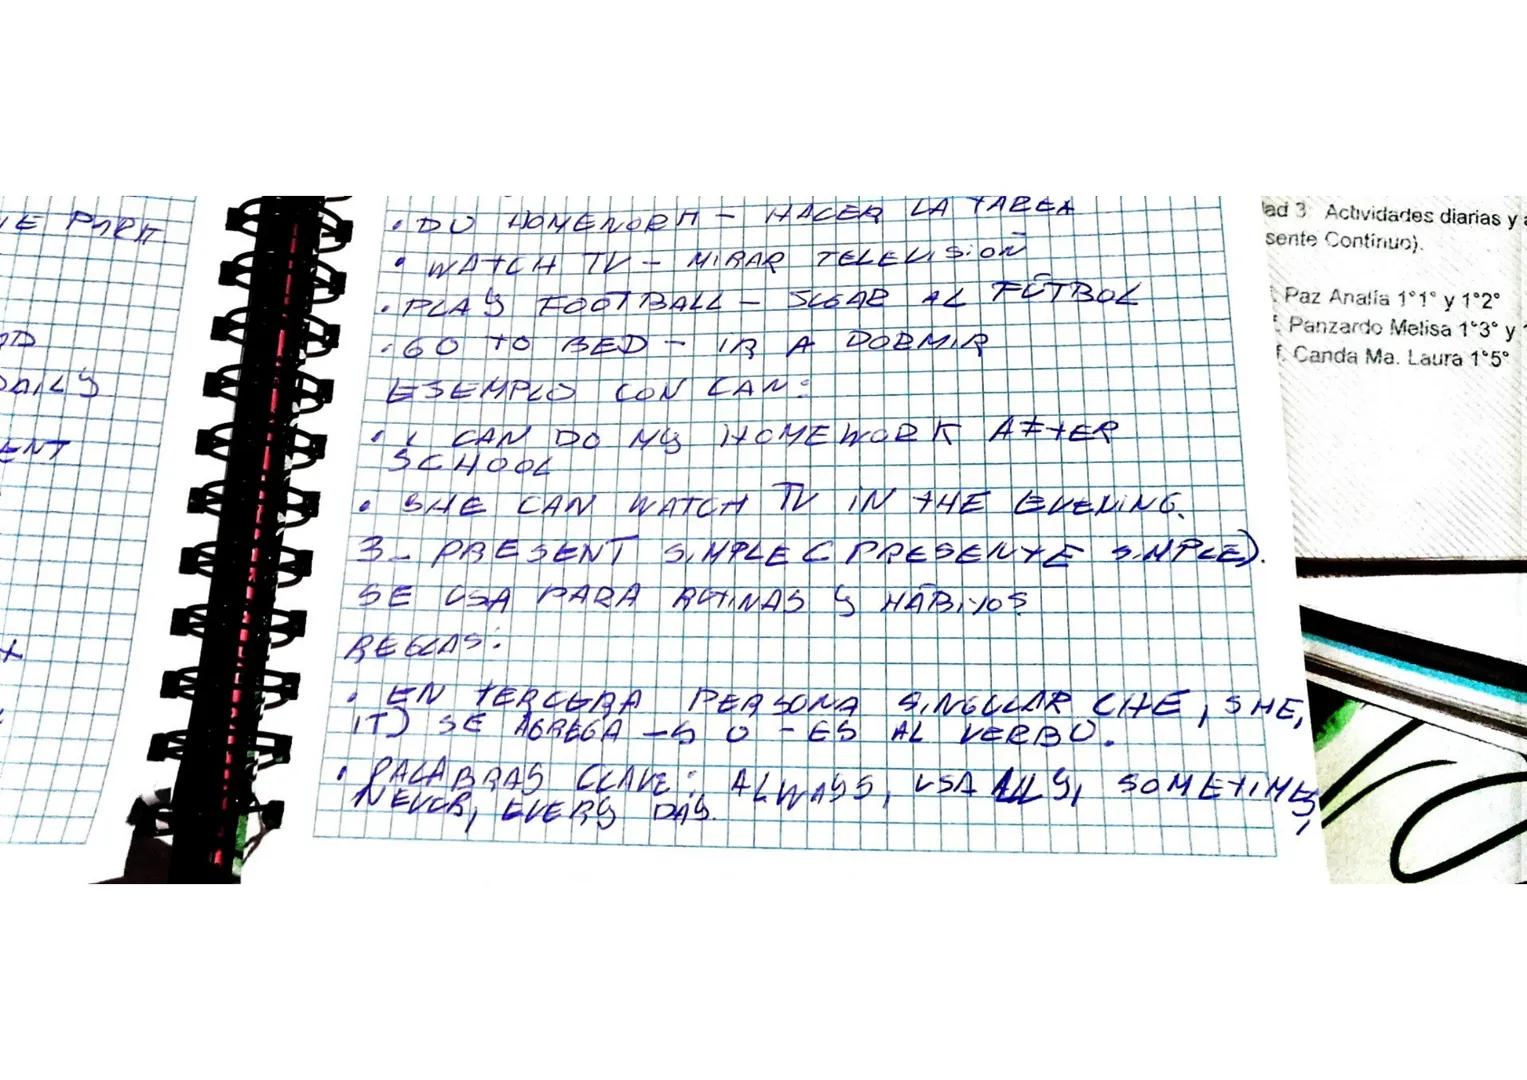 E PARK
DAILY
ENT
• DO HOMEWORK – HACER LA TAREA
• WATCH TV – MIRAR TELEVISIÓN
• PLAY FOOTBALL – JUGAR AL FÚTBOL
• GO TO BED – IR A DORMIR
EJEMPLO CON CAN:
• I CAN DO MY HOMEWORK AFTER
SCHOOL
• SHE CAN WATCH TV IN THE EVENING.
3– PRESENT SIMPLE (PRESENTE SIMPLE).
SE USA PARA RUTINAS Y HÁBITOS
REGLAS:
• EN TERCERA PERSONA SINGULAR (HE, SHE,
IT) SE AGREGA –S O –ES AL VERBO.
• PALABRAS CLAVE: ALWAYS, USUALLY, SOMETIMES,
NEVER, EVERY DAY.
ad 3 Actividades diarias y a
sente Contínuo).
Paz Analía 1°1° y 1°2°
Panzardo Melisa 1°3° y
f. Canda Ma. Laura 1°5°